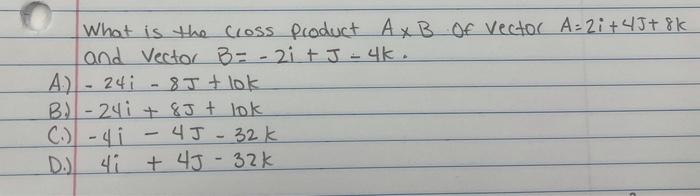 What is the cross product A x B of vector A=2i+4J+8k
and vector B= -2i + J - 4k.
A.) - 24i - 8J + 10k
B.) - 24i + 8J + 10k
C.) -4i - 4J - 32k
D.) 4i + 4J - 32k